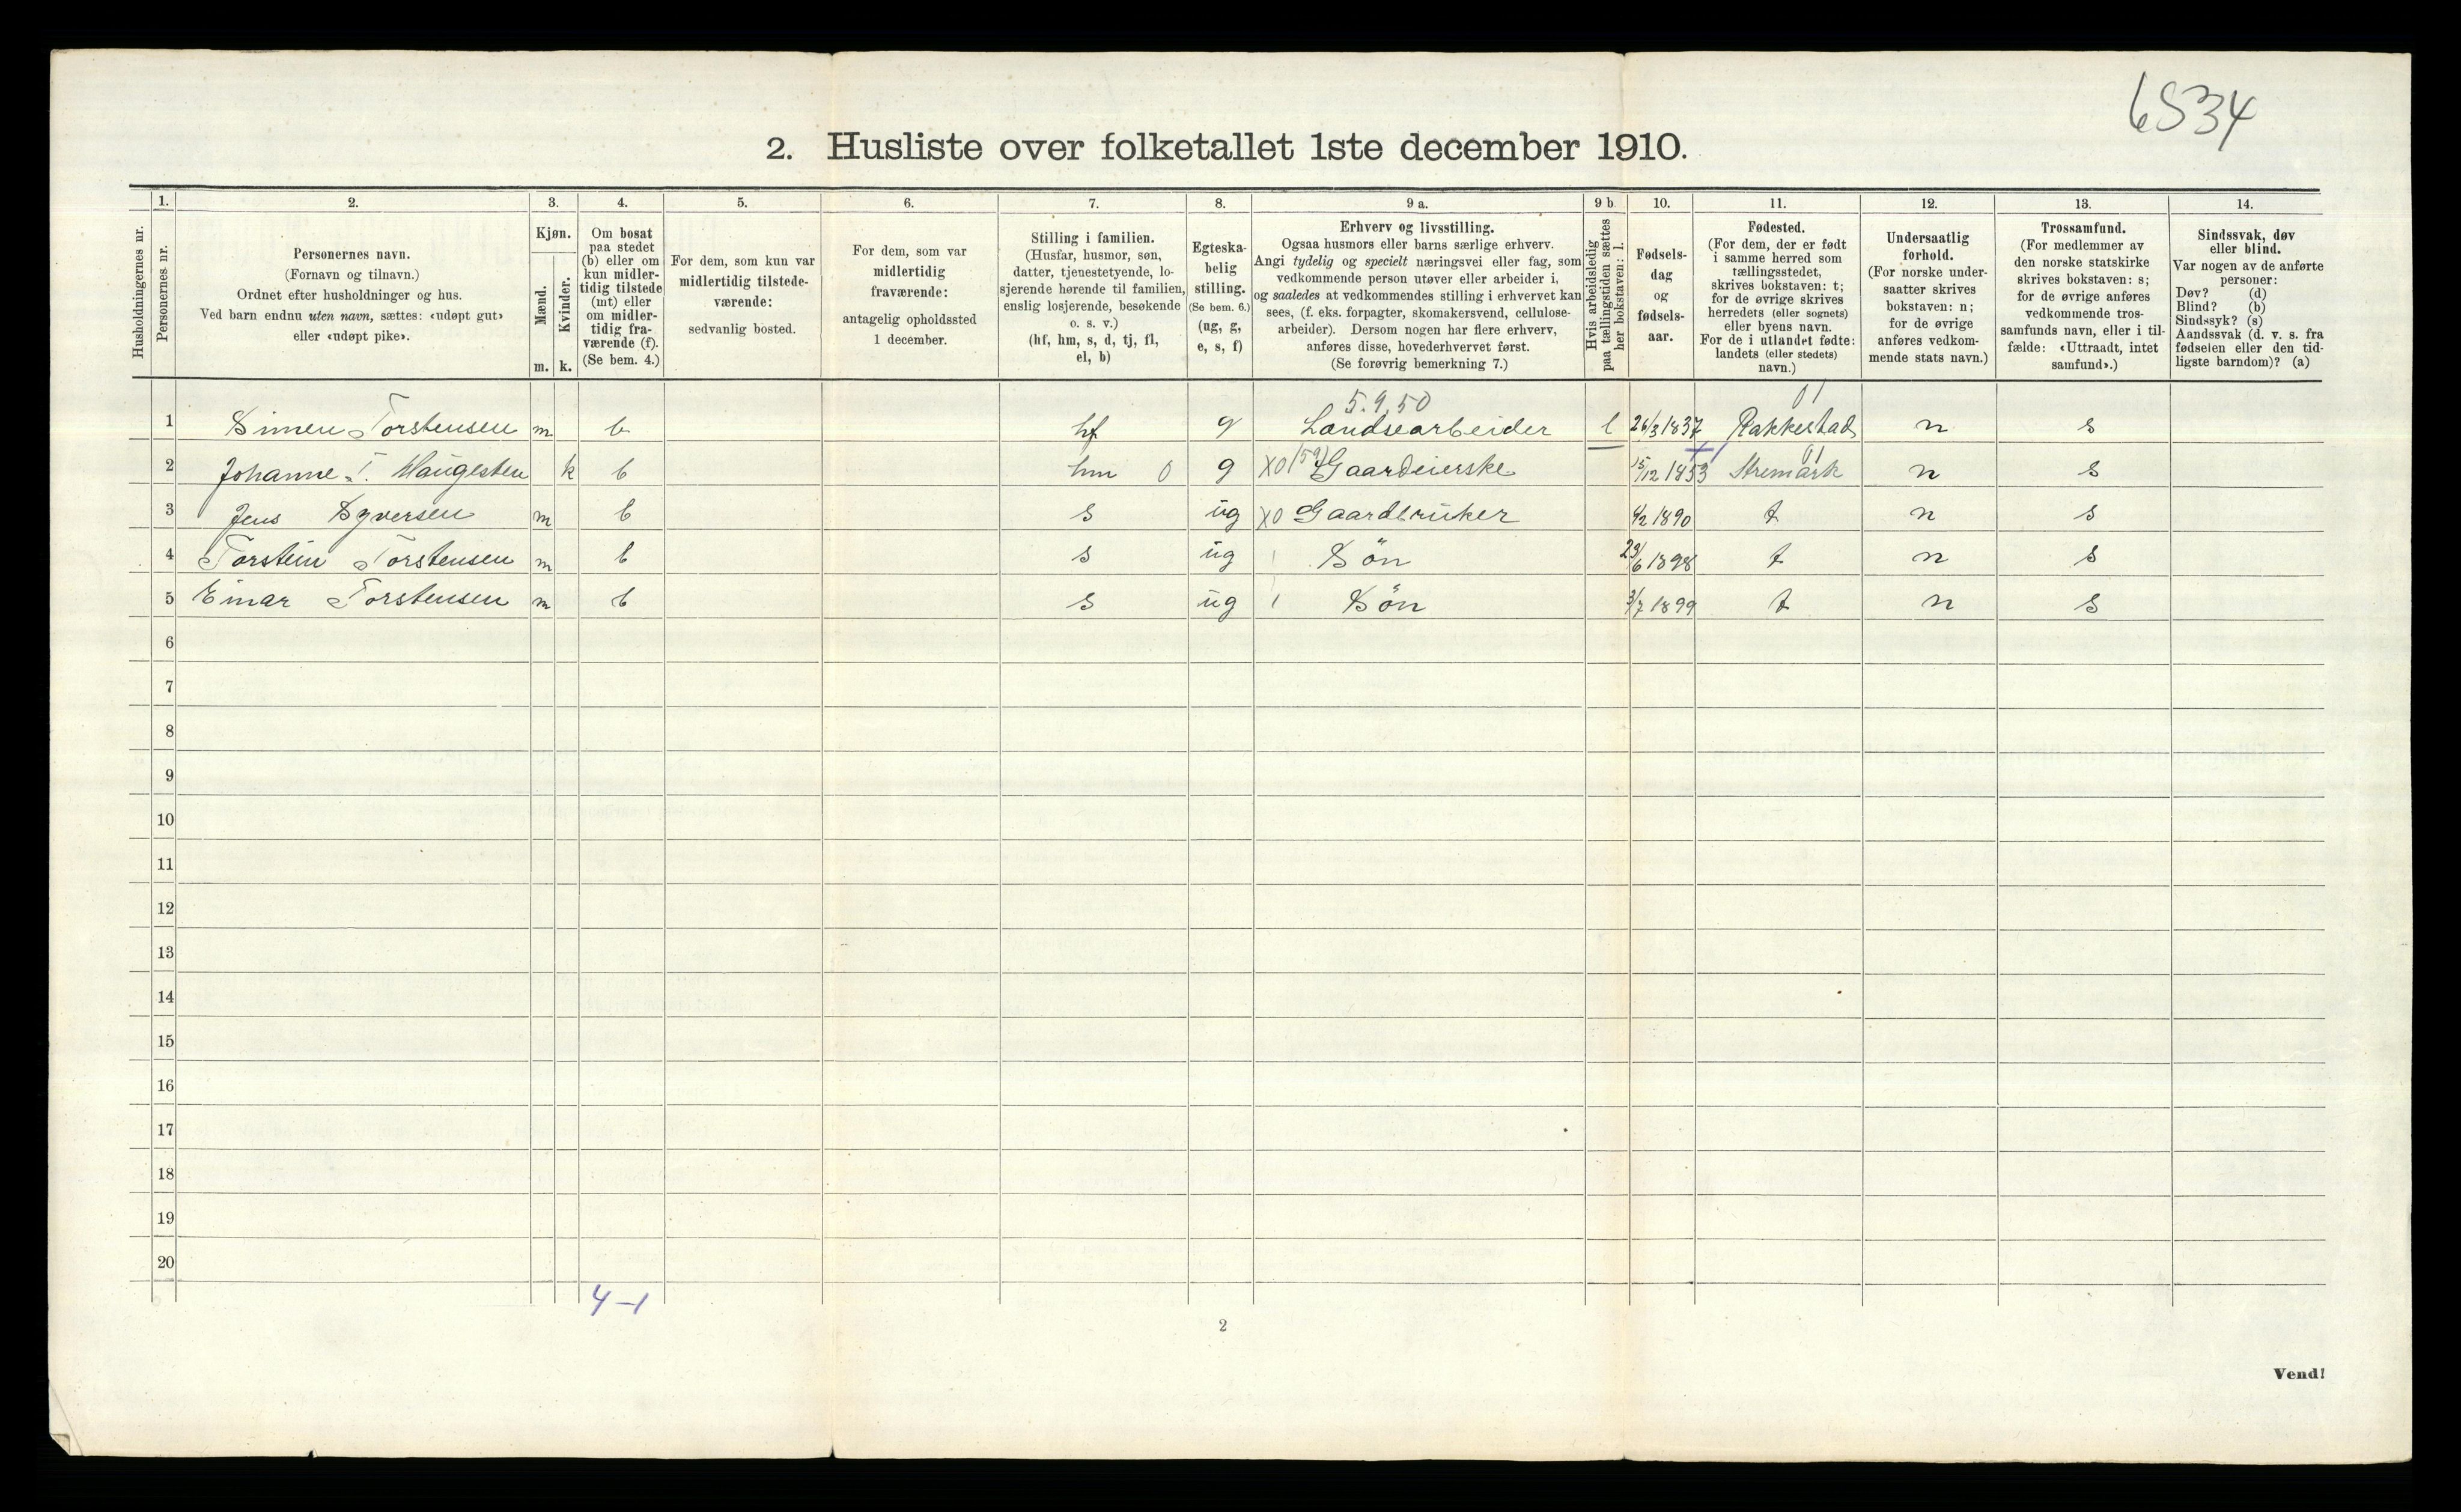 6534
2. Husliste over folketallet 1ste december 1910.
Husholdningernes nr.
1.
Personernes nr.
2.
Personernes navn.
(Fornavn og tilnavn.)
Ordnet efter husholdninger og hus.
Ved barn endnu uten navn, sættes: «udøpt gut»
eller «udøpt pike».
3.
Kjøn.
Mænd.
Kvinder.
m. k.
4.
Om bosat
paa stedet
(b) eller om
kun midler-
tidig tilstede
(mt) eller
om midler-
tidig fra-
værende (f).
(Se bem. 4.)
5.
For dem, som kun var
midlertidig tilstede-
værende:
sedvanlig bosted.
6.
For dem, som var
midlertidig
fraværende:
antagelig opholdssted
1 december.
7.
Stilling i familien.
(Husfar, husmor, søn,
datter, tjenestetyende, lo-
sjerende hørende til familien,
enslig losjerende, besøkende
o. s. v.)
(hf, hm, s, d, tj, fl,
el, b)
8.
Egteska-
belig
stilling.
(Se bem. 6.)
(ug, g,
e, s, f)
9 a.
Erhverv og livsstilling.
Ogsaa husmors eller barns særlige erhverv.
Angi tydelig og specielt næringsvei eller fag, som
vedkommende person utøver eller arbeider i,
og saaledes at vedkommendes stilling i erhvervet kan
sees, (f. eks. forpagter, skomakersvend, cellulose-
arbeider). Dersom nogen har flere erhverv,
anføres disse, hovederhvervet først.
(Se forøvrig bemerkning 7.)
9 b
Hvis arbeidsledig
paa tællingstiden sættes
her bokstaven: l.
10.
Fødsels-
dag
og
fødsels-
aar.
11.
Fødested.
(For dem, der er født
i samme herred som
tællingsstedet,
skrives bokstaven: t;
for de øvrige skrives
herredets (eller sognets)
eller byens navn.
For de i utlandet fødte:
landets (eller stedets)
navn.)
12.
Undersaatlig
forhold.
(For norske under-
saatter skrives
bokstaven: n;
for de øvrige
anføres vedkom-
mende stats navn.)
13.
Trossamfund.
(For medlemmer av
den norske statskirke
skrives bokstaven: s;
for de øvrige anføres
vedkommende tros-
samfunds navn, eller i til-
fælde: «Uttraadt, intet
samfund».)
14.
Sindssvak, døv
eller blind.
Var nogen av de anførte
personer:
Døv? (d)
Blind? (b)
Sindssyk? (s)
Aandssvak (d. v. s. fra
fødselen eller den tid-
ligste barndom)? (a)
5.9.50 01
1 Simen Torstensen m b hf g Landsearbeider l 26/3 1837 Rakkestad n s
01
2 Johanne T. Haugesten k b hm 0 g X0 (59) Gaardeierske 15/12 1853 Aremark n s
3 Jens Syversen m b s ug X0 Gaardbruker 4/2 1890 t n s
4 Torstein Torstensen m b s ug Søn 29/6 1898 t n s
5 Einar Torstensen m b s ug Søn 3/7 1899 t n s
6
7
8
9
10
11
12
13
14
15
16
17
18
19
20
4-1
2
Vend!